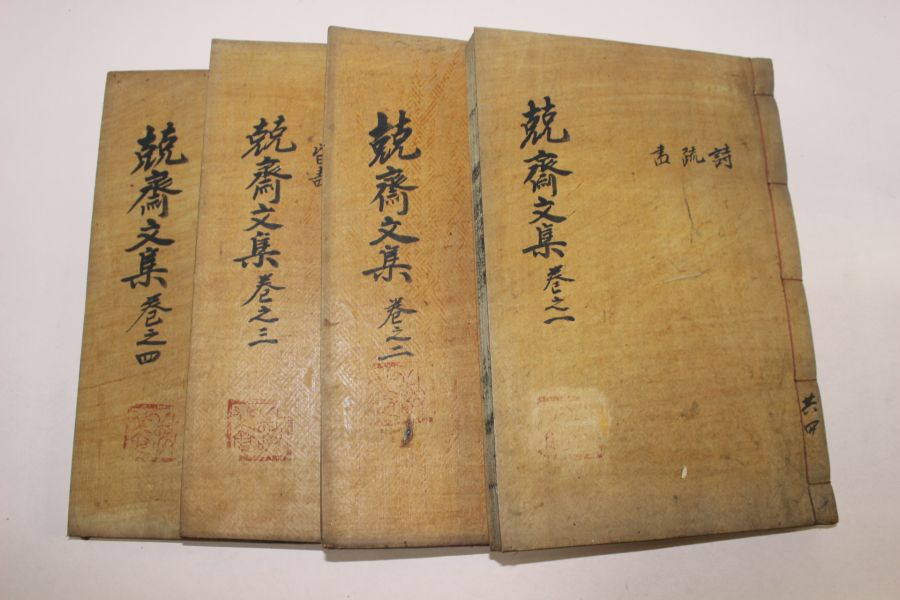 詩
疏
書
兢齋文集 卷之一
共四
兢齋文集 卷之二
兢齋文集 卷之三
兢齋文集 卷之四